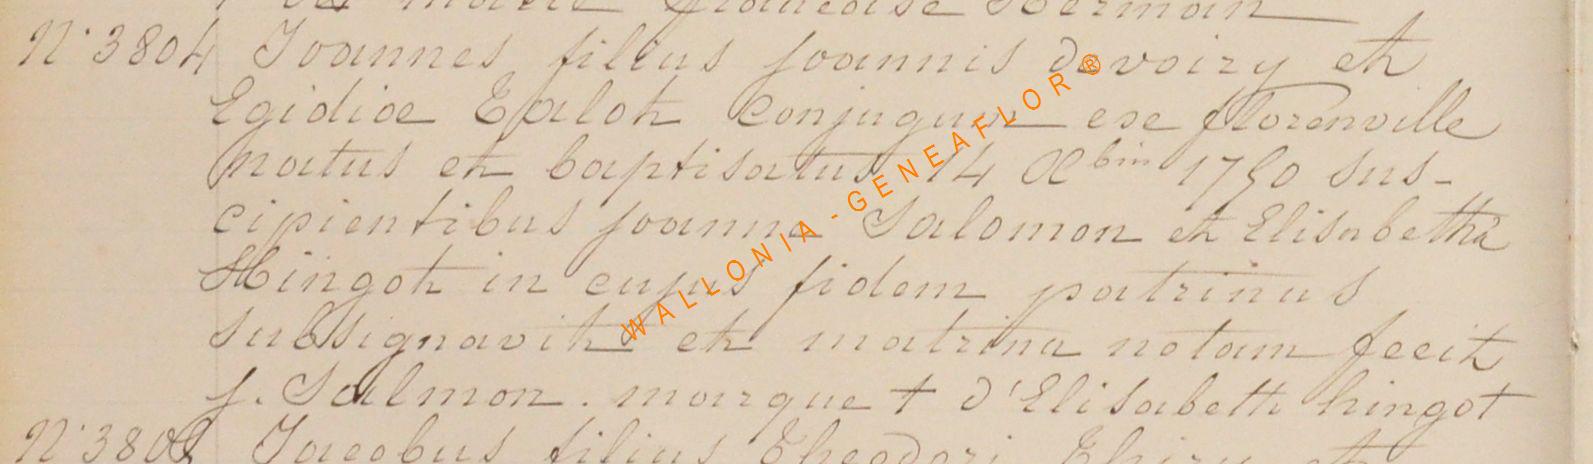 de marie françoise Herman
N° 3804 Joannes filius joannis devoizy et
Egidiœ Ealot Conjugum exe florenville
natus et baptisatus 14 Xbin 1750 sus-
cipientibus joanne Salomon et Elisabetha
Hingot in cujus fidem patrinus
subsignavit et matrina notam fecit
j. Salmon. marque + d'Elisabeth hingot
N° 380 Jacobus filius Theodori Thiry et
WALLONIA - GENEAFLOR ®